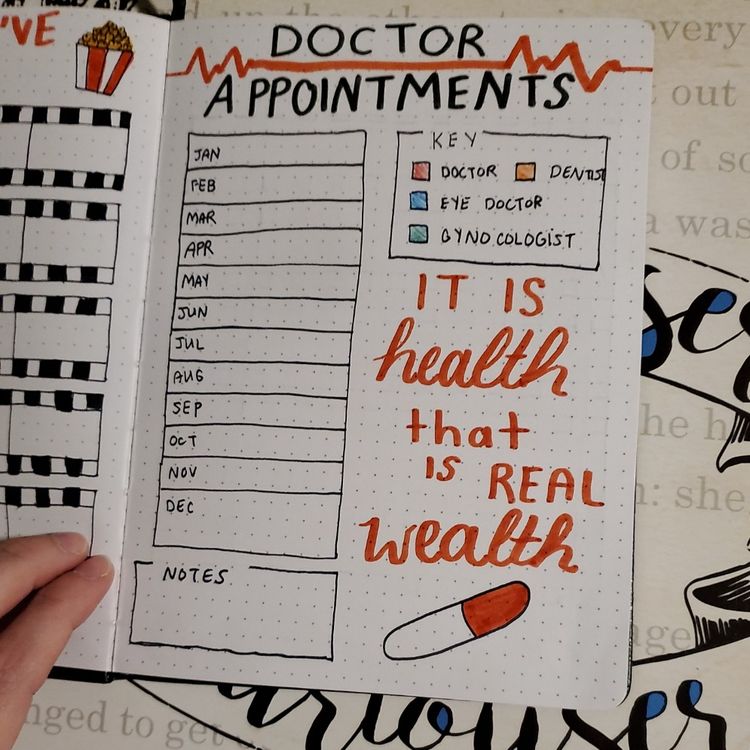 'VE
DOCTOR
APPOINTMENTS
JAN
FEB
MAR
APR
MAY
JUN
JUL
AUG
SEP
OCT
NOV
DEC
NOTES
KEY
DOCTOR DENTIST
EYE DOCTOR
GYNOCOLOGIST
IT IS
health
that
IS REAL
wealth
every
out
of so
a was
she